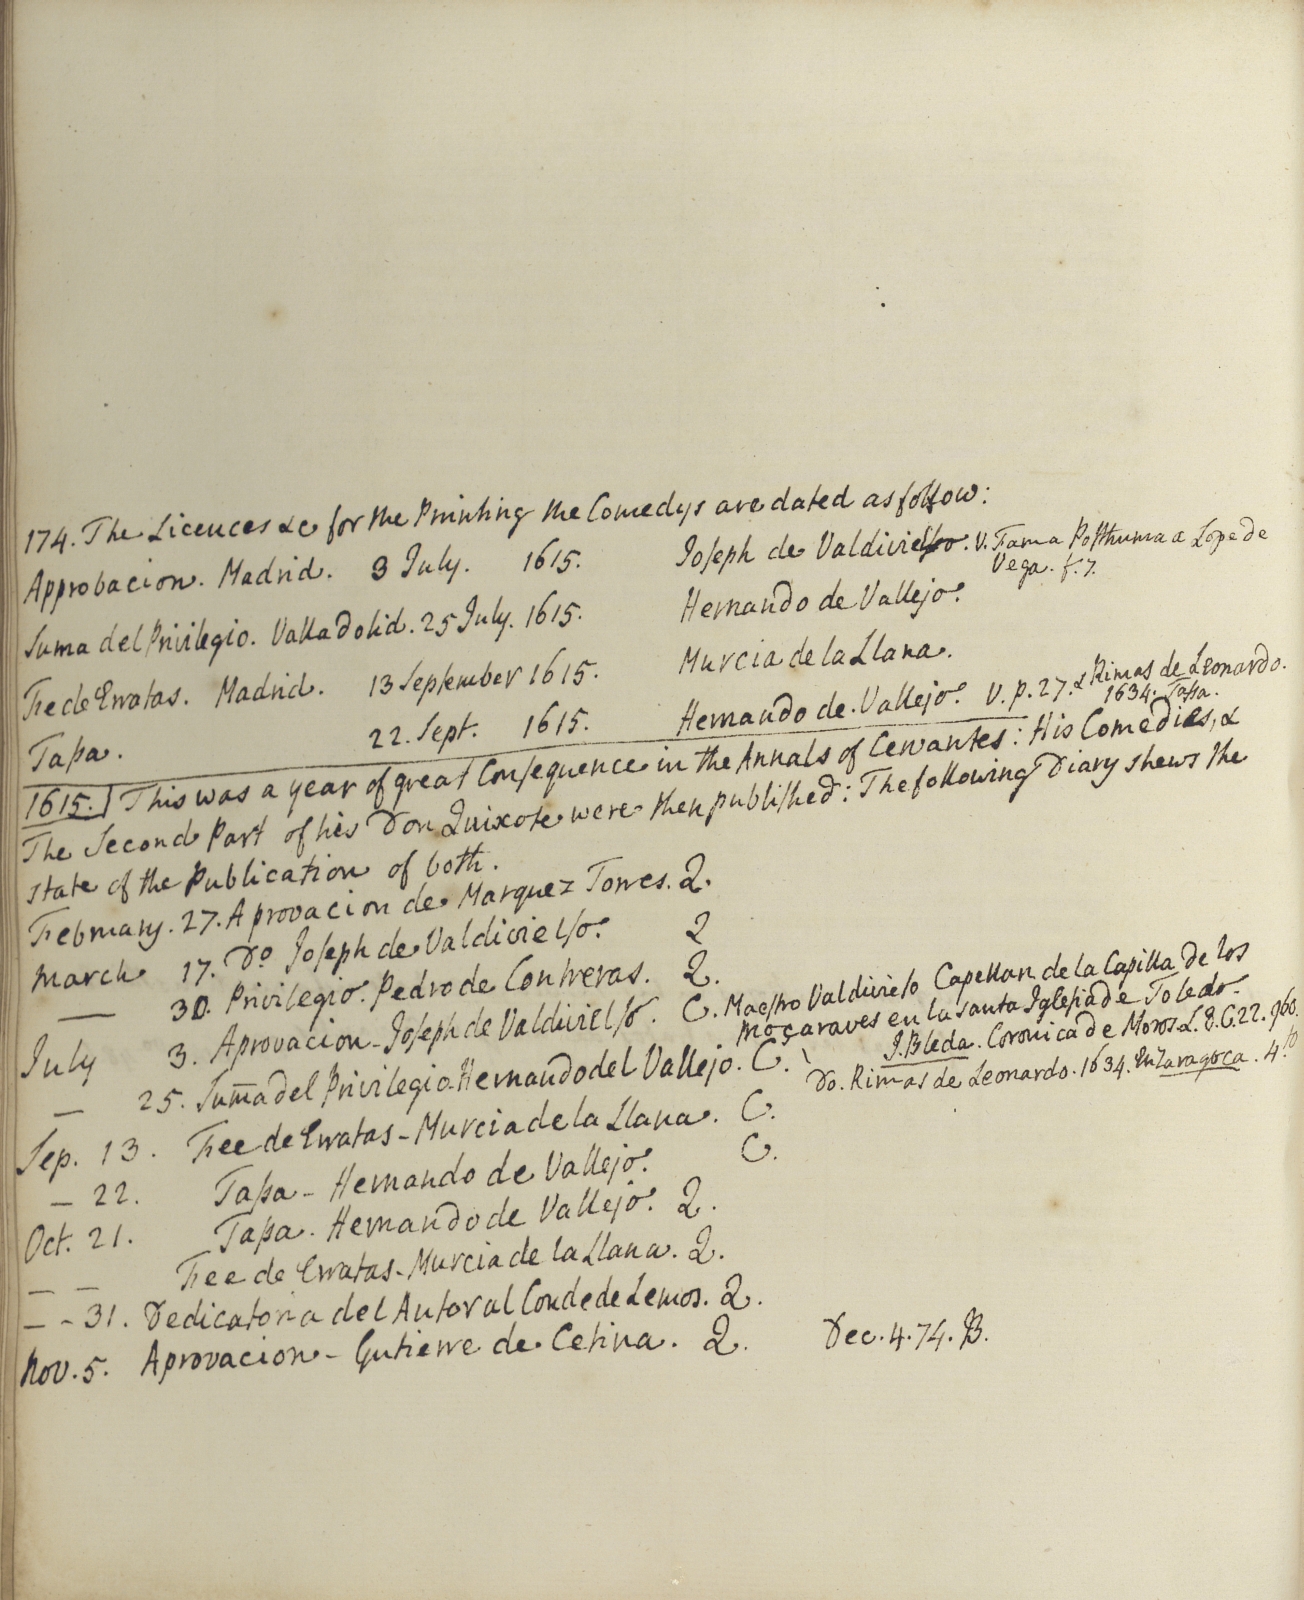 174. The Licences &c for the Printing the Comedys are dated as follow:
Approbacion. Madrid. 3 July. 1615. Joseph de Valdivielso. V. Fama Posthuma a Lope de
Vega. f. 7.
Suma del Privilegio. Valladolid. 25 July. 1615. Hernando de Vallejo.
Fee de Erratas. Madrid. 13 September 1615. Murcia de la Llana.
Tassa. 22. Sept. 1615. Hernando de Vallejo. V. p. 27. & Rimas de Leonardo.
1634. Tassa.
1615.] This was a year of great Consequence in the Annals of Cervantes: His Comedies, &
The Second Part of his Don Quixote were then published: The following Diary shews the
state of the Publication of both.
February. 27. Aprovacion de Marquez Torres. Q.
March 17. Do. Joseph de Valdivielso. Q
— 30. Privilegio. Pedro de Contreras. Q.
July 3. Aprovacion - Joseph de Valdivielso. C. Maestro Valdivielso Capellan de la Capilla de los
Moçaraves en la Santa Iglesia de Toledo.
J. Bleda. Coronica de Moros L. 8. C. 22. 960.
— 25. Suma del Privilegio. Hernando del Vallejo. C. Do. Rimas de Leonardo. 1634. En Zaragoça. 4.to
Sep. 13. Fee de Erratas - Murcia de la Llana. C.
— 22. Tassa - Hernando de Vallejo. C.
Oct. 21. Tassa. Hernando de Vallejo. Q.
— — Fee de Erratas - Murcia de la Llana. Q.
— - 31. Dedicatoria del Autor al Conde de Lemos. Q.
Nov. 5. Aprovacion - Gutierre de Cetina. Q. Dec. 4. 74. B.